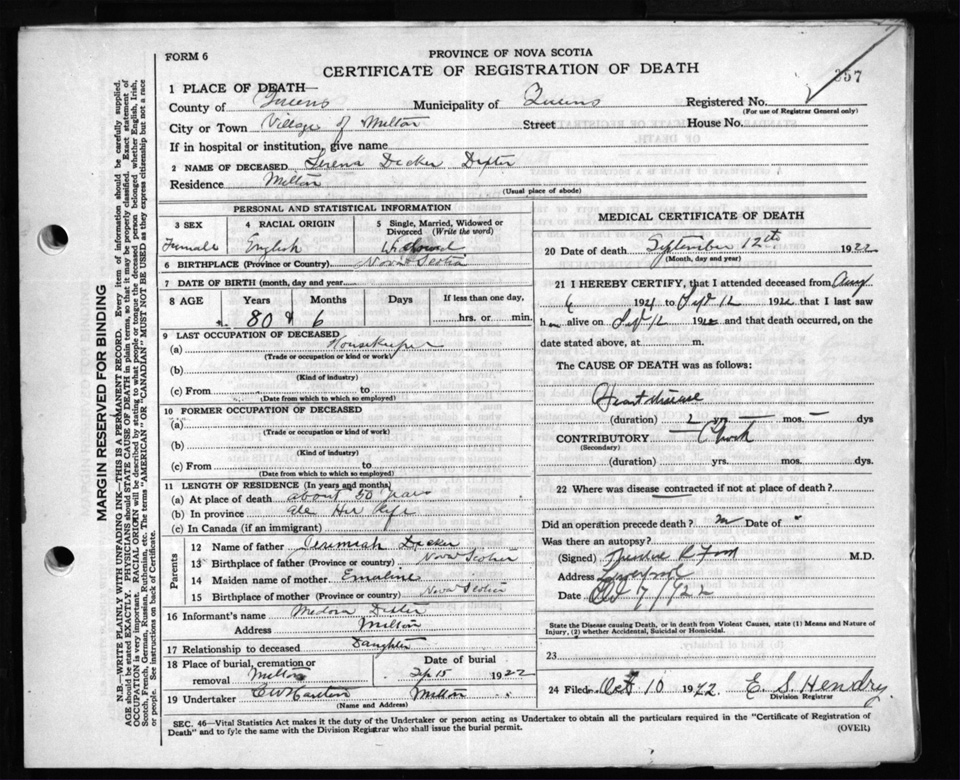 FORM 6
PROVINCE OF NOVA SCOTIA
CERTIFICATE OF REGISTRATION OF DEATH
357
1 PLACE OF DEATH—
County of Queens Municipality of Queens Registered No.
(For use of Registrar General only)
City or Town Village of Milton Street House No.
If in hospital or institution, give name
2 NAME OF DECEASED Serena Decker Dexter
Residence Milton
(Usual place of abode)
PERSONAL AND STATISTICAL INFORMATION
3 SEX 4 RACIAL ORIGIN 5 Single, Married, Widowed or Divorced (Write the word)
Female English Widowed
6 BIRTHPLACE (Province or Country) Nova Scotia
7 DATE OF BIRTH (month, day and year)
8 AGE Years Months Days If less than one day,
80 & 6 hrs. or min.
9 LAST OCCUPATION OF DECEASED
(a) Housekeeper
(Trade or occupation or kind of work)
(b)
(Kind of industry)
(c) From to
(Date from which to which so employed)
10 FORMER OCCUPATION OF DECEASED
(a)
(Trade or occupation or kind of work)
(b)
(Kind of industry)
(c) From to
(Date from which to which so employed)
11 LENGTH OF RESIDENCE (In years and months)
(a) At place of death about 50 years
(b) In province all Her life
(c) In Canada (if an immigrant)
Parents
12 Name of father Jeremiah Decker
13 Birthplace of father (Province or country) Nova Scotia
14 Maiden name of mother Emeline
15 Birthplace of mother (Province or country) Nova Scotia
16 Informant's name Medora Dexter
Address Milton
17 Relationship to deceased Daughter
18 Place of burial, cremation or removal Milton Date of burial Sep 15 1922
19 Undertaker Milton
(Name and Address)
MEDICAL CERTIFICATE OF DEATH
20 Date of death September 12th 1922
(Month, day and year)
21 I HEREBY CERTIFY, that I attended deceased from Aug
6 1921 to Sept 12 1922 that I last saw
her alive on Sept 12 1922 and that death occurred, on
date stated above, at m.
The CAUSE OF DEATH was as follows:
Heart disease
(duration) 2 yrs. — mos. — dys
CONTRIBUTORY
(Secondary)
(duration) yrs. mos. dys.
22 Where was disease contracted if not at place of death?
Did an operation precede death? Date of
Was there an autopsy?
(Signed) M.D.
Address Liverpool
Date Oct 7/1922
State the Disease causing Death, or in death from Violent Causes, state (1) Means and Nature of
Injury, (2) whether Accidental, Suicidal or Homicidal.
23
24 Filed Oct 10 1922 E. S. Hendry
Division Registrar
SEC. 46—Vital Statistics Act makes it the duty of the Undertaker or person acting as Undertaker to obtain all the particulars required in the "Certificate of Registration of
Death" and to fyle the same with the Division Registrar who shall issue the burial permit.
(OVER)
MARGIN RESERVED FOR BINDING
N.B.—WRITE PLAINLY WITH UNFADING INK—THIS IS A PERMANENT RECORD. Every item of information should be carefully supplied.
AGE should be stated EXACTLY. PHYSICIANS should STATE CAUSE OF DEATH in plain terms, so that it may be properly classified. Exact statement of
OCCUPATION is very important. RACIAL ORIGIN will be described by stating to what people or tongue the deceased person belonged whether English, Irish,
Scotch, French, German, Russian, Ruthenian, etc. The terms "AMERICAN" OR "CANADIAN" MUST NOT BE USED as they express citizenship but not a race
or people. See instructions on back of Certificate.